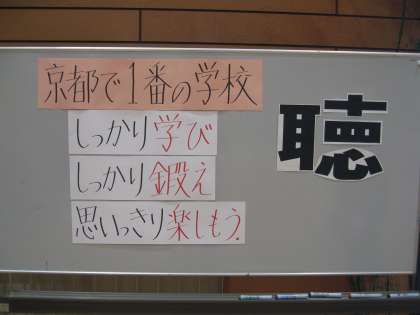 京都で1番の学校
しっかり学び
しっかり鍛え
思いっきり楽しもう.
聴